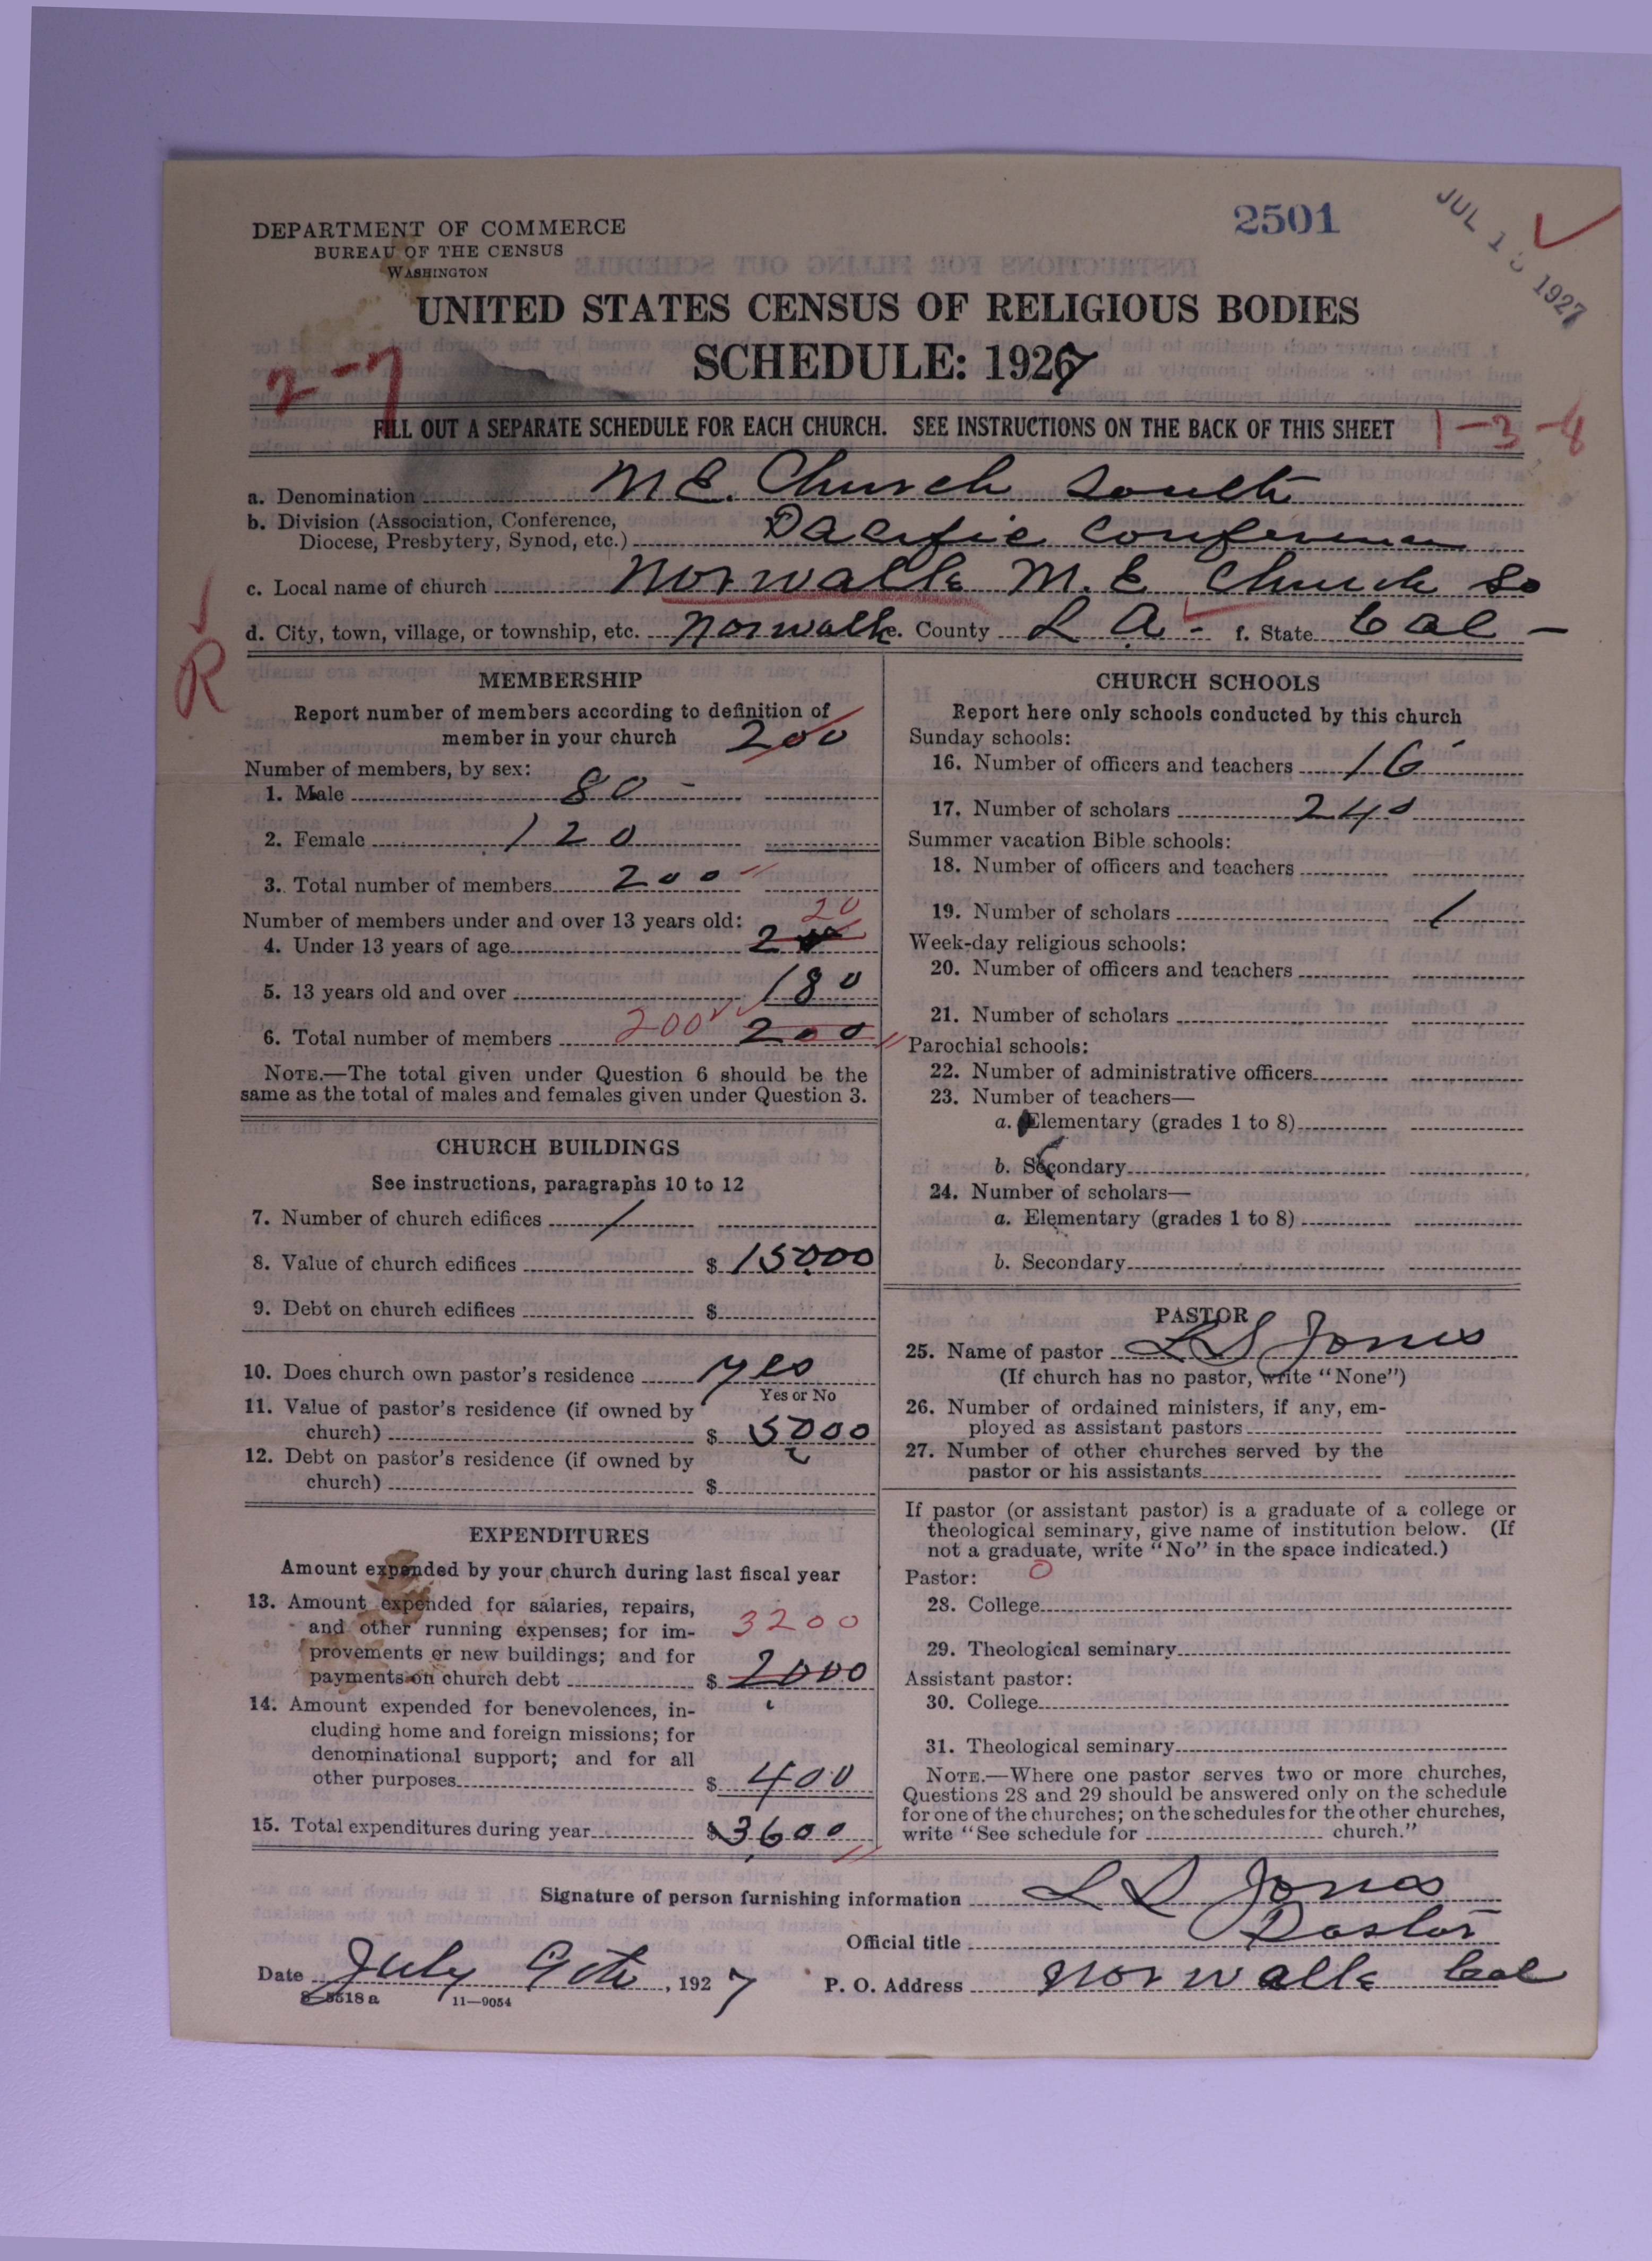 DEPARTMENT OF COMMERCE
BUREAU OF THE CENSUS
WASHINGTON
2501
JUL 1 1927
UNITED STATES CENSUS OF RELIGIOUS BODIES
SCHEDULE: 1927
2-7
FILL OUT A SEPARATE SCHEDULE FOR EACH CHURCH. SEE INSTRUCTIONS ON THE BACK OF THIS SHEET
1-3-8
a. Denomination M E. Church South
b. Division (Association, Conference, Diocese, Presbytery, Synod, etc.) Pacific Conference
c. Local name of church Norwalk M. E Church So
d. City, town, village, or township, etc. Norwalk e. County L A - f. State Cal -
R
MEMBERSHIP
Report number of members according to definition of
member in your church 200
Number of members, by sex:
1. Male 80 -
2. Female 120
3. Total number of members 200
Number of members under and over 13 years old: 20
4. Under 13 years of age 2
5. 13 years old and over 180
6. Total number of members 200 200
NOTE.—The total given under Question 6 should be the
same as the total of males and females given under Question 3.
CHURCH BUILDINGS
See instructions, paragraphs 10 to 12
7. Number of church edifices 1
8. Value of church edifices $ 15000
9. Debt on church edifices $
10. Does church own pastor's residence yes
Yes or No
11. Value of pastor's residence (if owned by
church) $ 5000
12. Debt on pastor's residence (if owned by
church) $
EXPENDITURES
Amount expended by your church during last fiscal year
13. Amount expended for salaries, repairs,
and other running expenses; for im- 3200
provements or new buildings; and for
payments on church debt $ 2000
14. Amount expended for benevolences, in-
cluding home and foreign missions; for
denominational support; and for all
other purposes $ 400
15. Total expenditures during year $ 3600
CHURCH SCHOOLS
Report here only schools conducted by this church
Sunday schools:
16. Number of officers and teachers 16
17. Number of scholars 240
Summer vacation Bible schools:
18. Number of officers and teachers
19. Number of scholars
Week-day religious schools:
20. Number of officers and teachers
21. Number of scholars
Parochial schools:
22. Number of administrative officers
23. Number of teachers—
a. Elementary (grades 1 to 8)
b. Secondary
24. Number of scholars—
a. Elementary (grades 1 to 8)
b. Secondary
PASTOR
25. Name of pastor L S Jones
(If church has no pastor, write "None")
26. Number of ordained ministers, if any, em-
ployed as assistant pastors
27. Number of other churches served by the
pastor or his assistants
If pastor (or assistant pastor) is a graduate of a college or
theological seminary, give name of institution below. (If
not a graduate, write "No" in the space indicated.)
Pastor: 0
28. College
29. Theological seminary
Assistant pastor:
30. College
31. Theological seminary
NOTE.—Where one pastor serves two or more churches,
Questions 28 and 29 should be answered only on the schedule
for one of the churches; on the schedules for the other churches,
write "See schedule for church."
Signature of person furnishing information L S Jones
Official title Pastor
Date July 9th, 1927 P. O. Address Norwalk Cal
8-5518a 11—9054